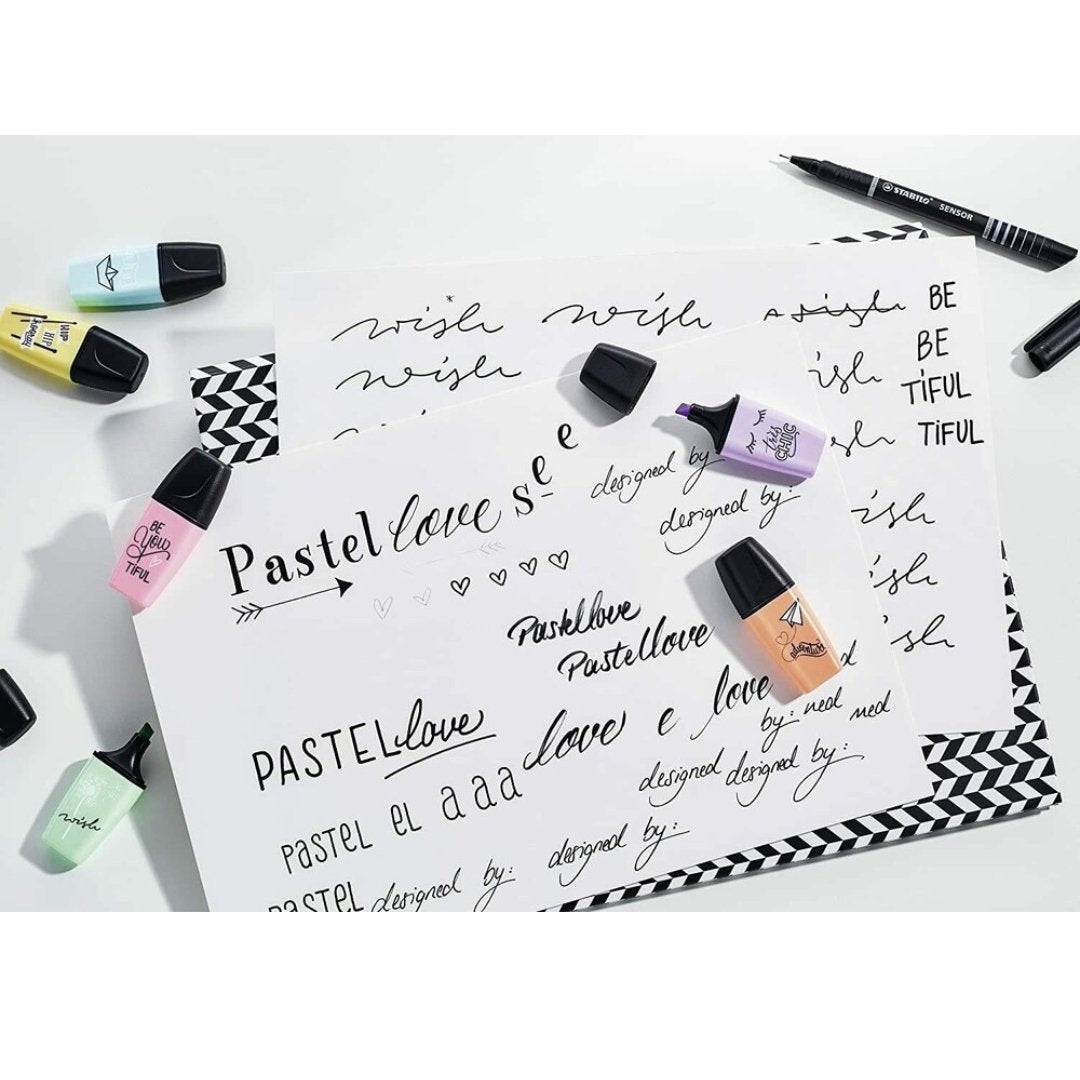 STABILO SENSOR
wish wish wish BE
wish wish BE
TiFUL
wish TiFUL
wish
wish
wish
HIP
HIP
HURRAY
très
CHIC
BE
YOU
TiFUL
adventure
wish
Pastel love s e e
designed by
designed by:
Pastellove
Pastellove
PASTEL love
love e love
by: ned ned
PASTEL EL a a a
designed designed by:
designed by:
PASTEL designed by: